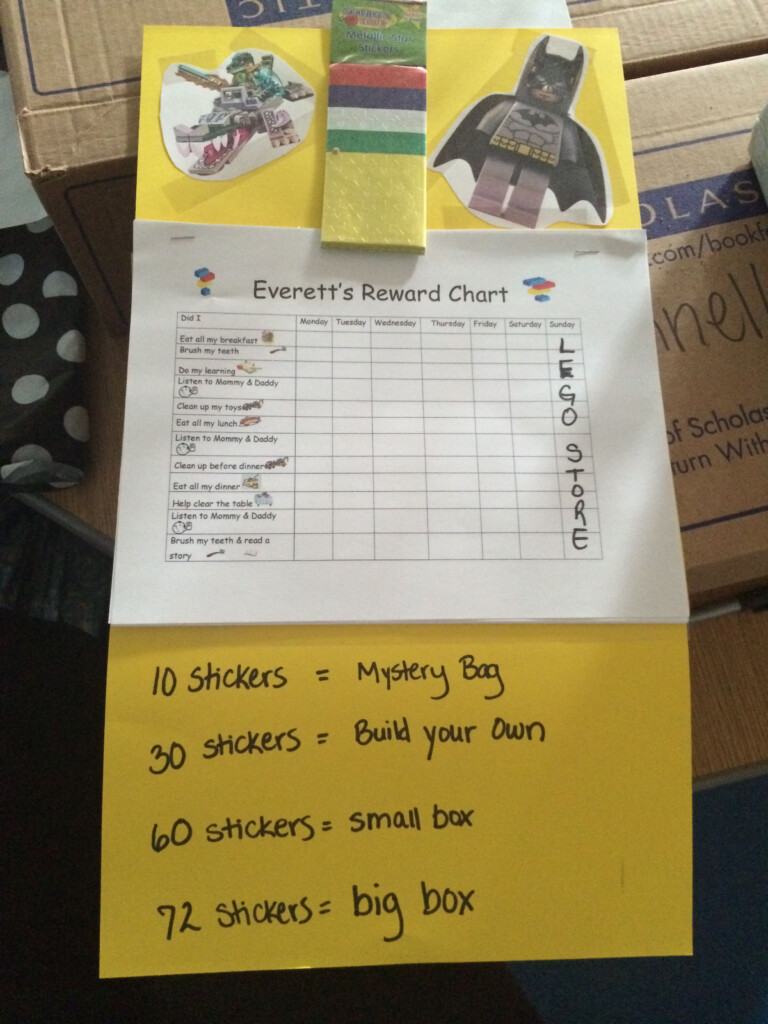 Metallic Star
Stickers
OLAS
.com/bookf
nnell
of Scholas
turn With
Everett's Reward Chart
Did I Monday Tuesday Wednesday Thursday Friday Saturday Sunday
Eat all my breakfast
Brush my teeth
Do my learning
Listen to Mommy & Daddy
Clean up my toys
Eat all my lunch
Listen to Mommy & Daddy
Clean up before dinner
Eat all my dinner
Help clear the table
Listen to Mommy & Daddy
Brush my teeth & read a
story
LEGO STORE
10 Stickers = Mystery Bag
30 stickers = Build your own
60 stickers = small box
72 stickers = big box